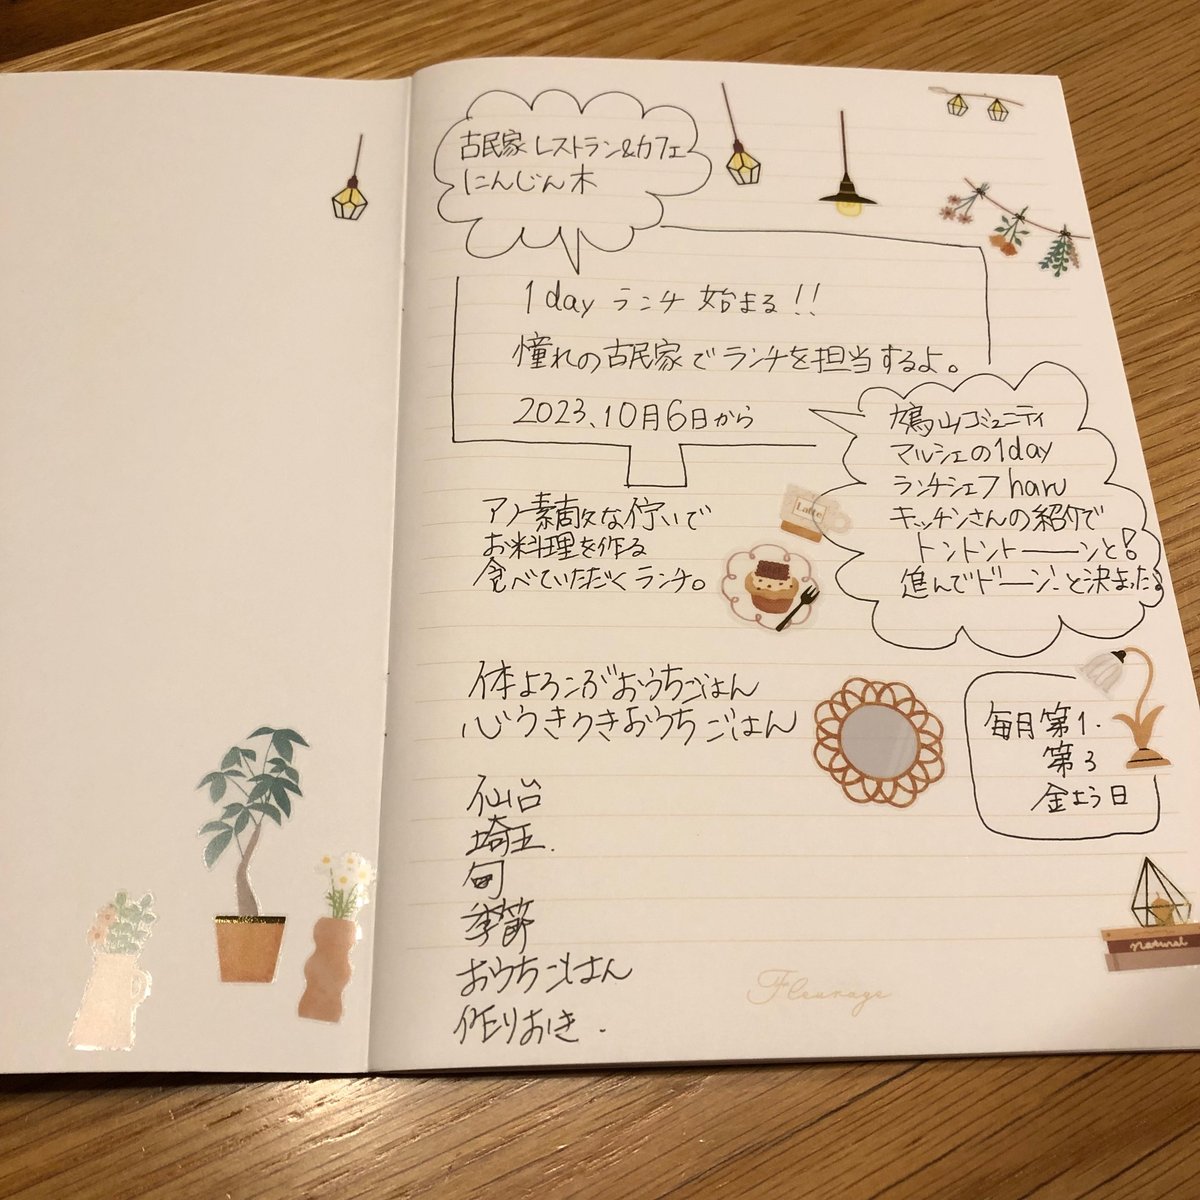 古民家レストラン&カフェ
にんじん木
1day ランチ 始まる!!
憧れの古民家でランチを担当するよ。
2023、10月6日から
鳩山コミュニティ
マルシェの1day
ランチシェフharu
キッチンさんの紹介で
トントントーーンと!
進んでドーン!と決まったよ
アノ素敵な佇いで
お料理を作る
食べていただくランチ。
Latte
体よろこぶおうちごはん
心うきうきおうちごはん
毎月第1.
第3
金よう日
仙台
埼玉.
旬
季節
おうちごはん
作りおき.
natural
Fleurage